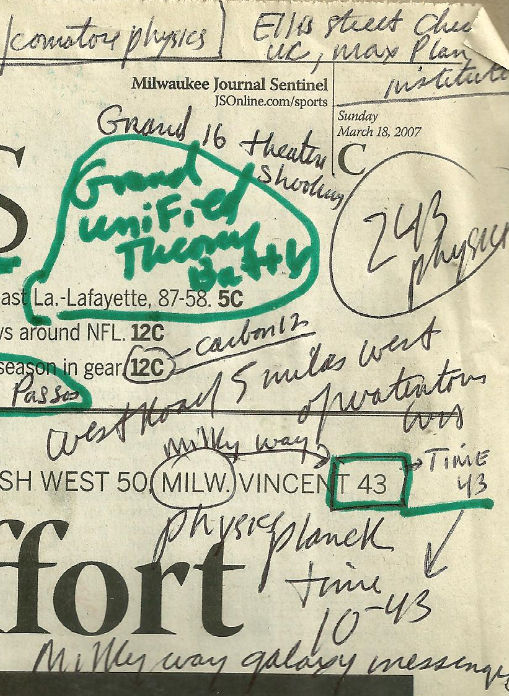 comatose physics
Ellis street
UC, Max Plan
institute
Milwaukee Journal Sentinel
JSOnline.com/sports
Sunday
March 18, 2007
C
Grand 16 theater
Shooting
S
Grand
unified
Theory
243
physics
ast La.-Lafayette, 87-58. 5C
ws around NFL. 12C
season in gear 12C
carbon 12
Passos
West Road 5 miles west
of watertown
wis
milky way
SH WEST 50, MILW. VINCENT 43
TIME
43
physics planck
time
10-43
ffort
Milky way galaxy messenge